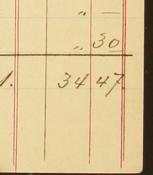 " —
" 30
1. 34 47